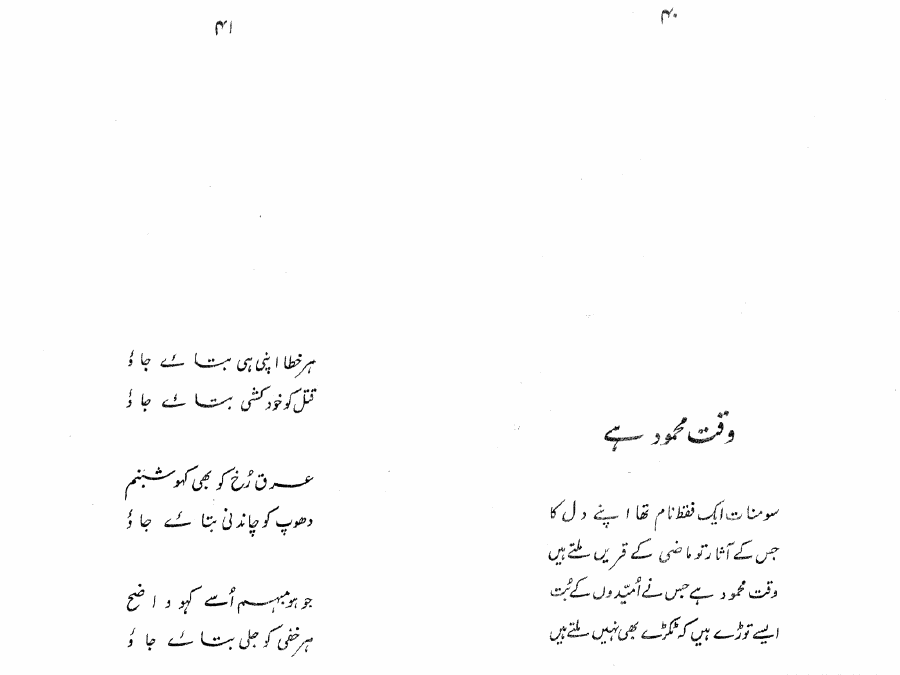 ۴۰
وقت محمود ہے
سومنات ایک فقط نام تھا اپنے دل کا
جس کے آثار تو ماضی کے قریں ملتے ہیں
وقت محمود ہے جس نے اُمیّدوں کے بُت
ایسے توڑے ہیں کہ ٹکڑے بھی نہیں ملتے ہیں
۴۱
ہر خطا اپنی ہی بتائے جاؤ
قتل کو خودکشی بتائے جاؤ
عرق رُخ کو بھی کہو شبنم
دھوپ کو چاندنی بتائے جاؤ
جو ہو مبہم اُسے کہو واضح
ہر خفی کو جلی بتائے جاؤ